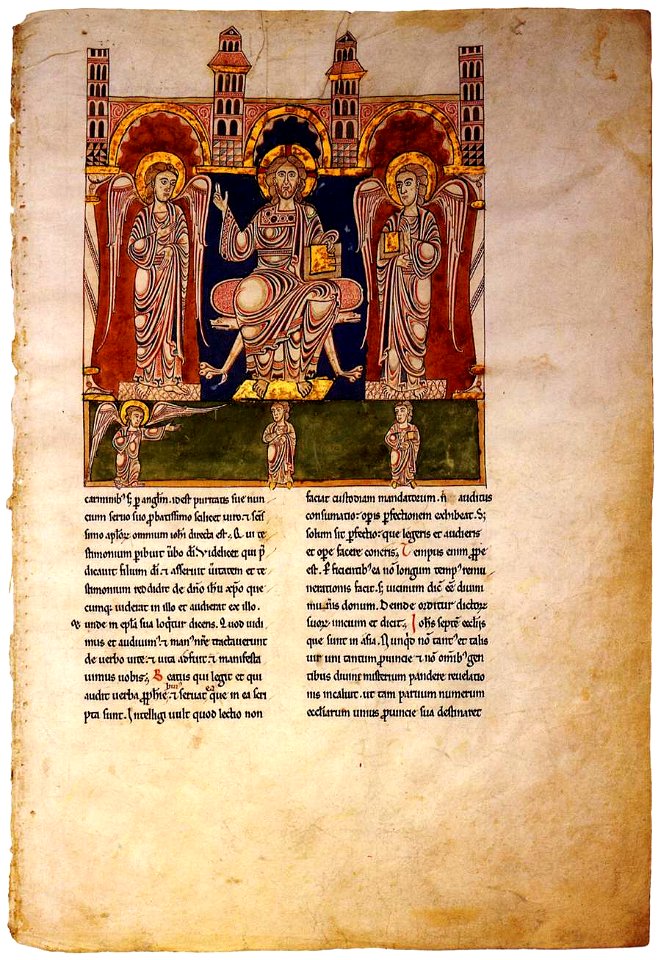 carminib' ł p anglm. idest puritatis sue nun
cium seruo suo probatissimo scilicet uiro. ⁊ scis
simo aplor omnium iohi directa est. Qui te
stimonium pibuit ubo di. Videlicet qui p
dicauit filium di. ⁊ asseruit ueritatem et te
stimonium reddidit de dno ihu xpo que
cumq; uiderat in illo et audierat ex illo.
unde in epła sua loqtur dicens. Quod uidi
mus et audiuim' ⁊ man' nre tractauerunt
de uerbo uite. ⁊ uita apparuit ⁊ manifesta
uimus uobis; Beatus qui legit et qui
audit uerba pphie hui' ⁊ seruat ea que in ea scri
pta sunt. Intelligi uult quod lectio non
faciat custodiam mandatorum. ñ auditus
consumatio opis pfectionem exhibeat. S;
solum sit pfectio. que legeris et audieris
et ope facere coneris; Tempus enim ppe
est. ł facientib' ea nō longum temp' remu
nerationis facit. ł uicinum dicit eē diuini
mun'is donum. Deinde orditur dictor
suor inicium et dicit; Johs septē ecclijs
que sunt in asia. Nunqd nō tant' et talis
uir uni tantum puincie ⁊ nō omib' gen
tibus diuini misterium pandere reuelatio
nis incaluit. ut tam partium numerum
ecclarum unius puincie sua destinaret